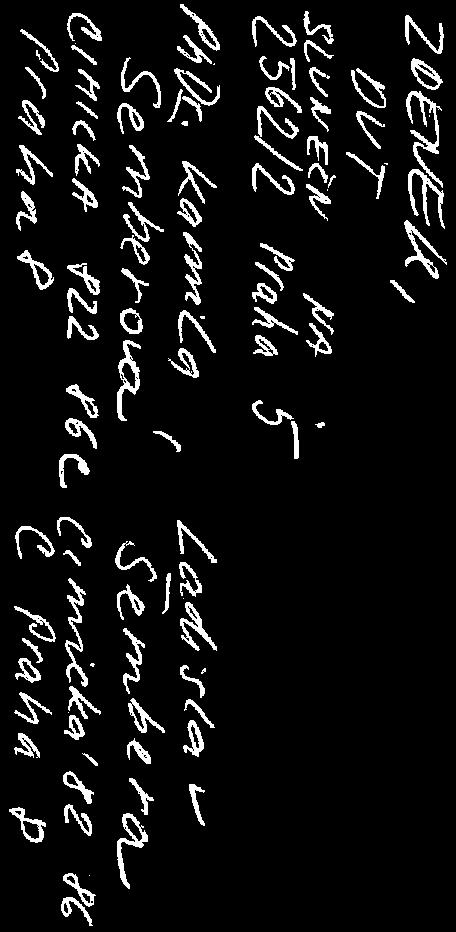 ZDENEK,
DVT
SLUNEČN NA
2562/2 Praha 5
PhDr. Kamila Ladislav
Semberova, Sembera
CIMICKA 822 86c Cimicka' 82 86
Praha 8 C Praha 8